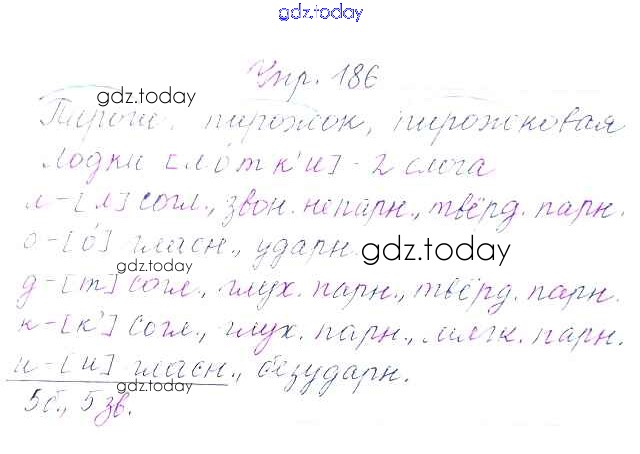 gdz.today
Упр. 186
gdz.today
Пироги, пирожок, пирожковая
Лодки [лотк'и] - 2 слога
л - [л] согл., звон. непарн., твёрд. парн.
о - [о́] гласн., ударн.
gdz.today
gdz.today
д - [т] согл., глух. парн., твёрд. парн.
к - [к'] согл., глух. парн., мягк. парн.
и - [и] гласн., безударн.
gdz.today
5 б., 5 зв.